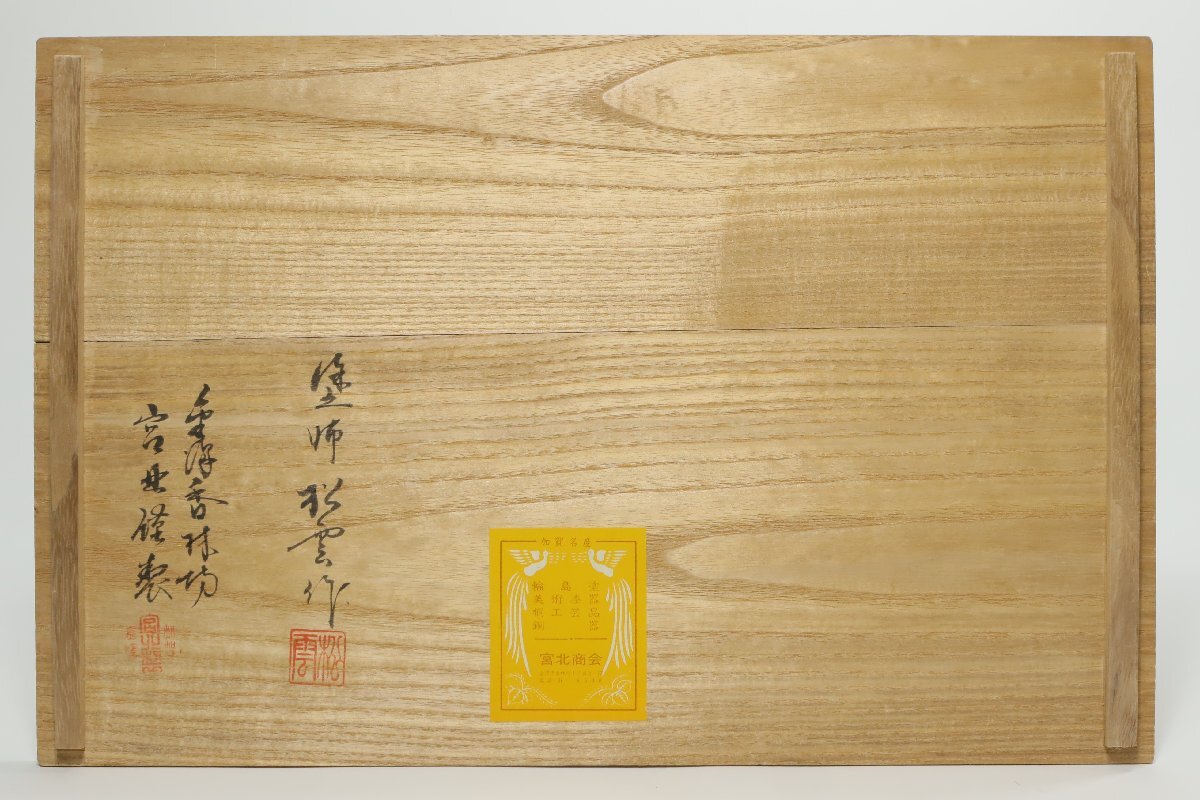 塗師 松雲作
松雲
金沢香林坊
宮北謹製
加賀名産
輪島塗
美術漆器
桐工芸品
銅器
宮北商会